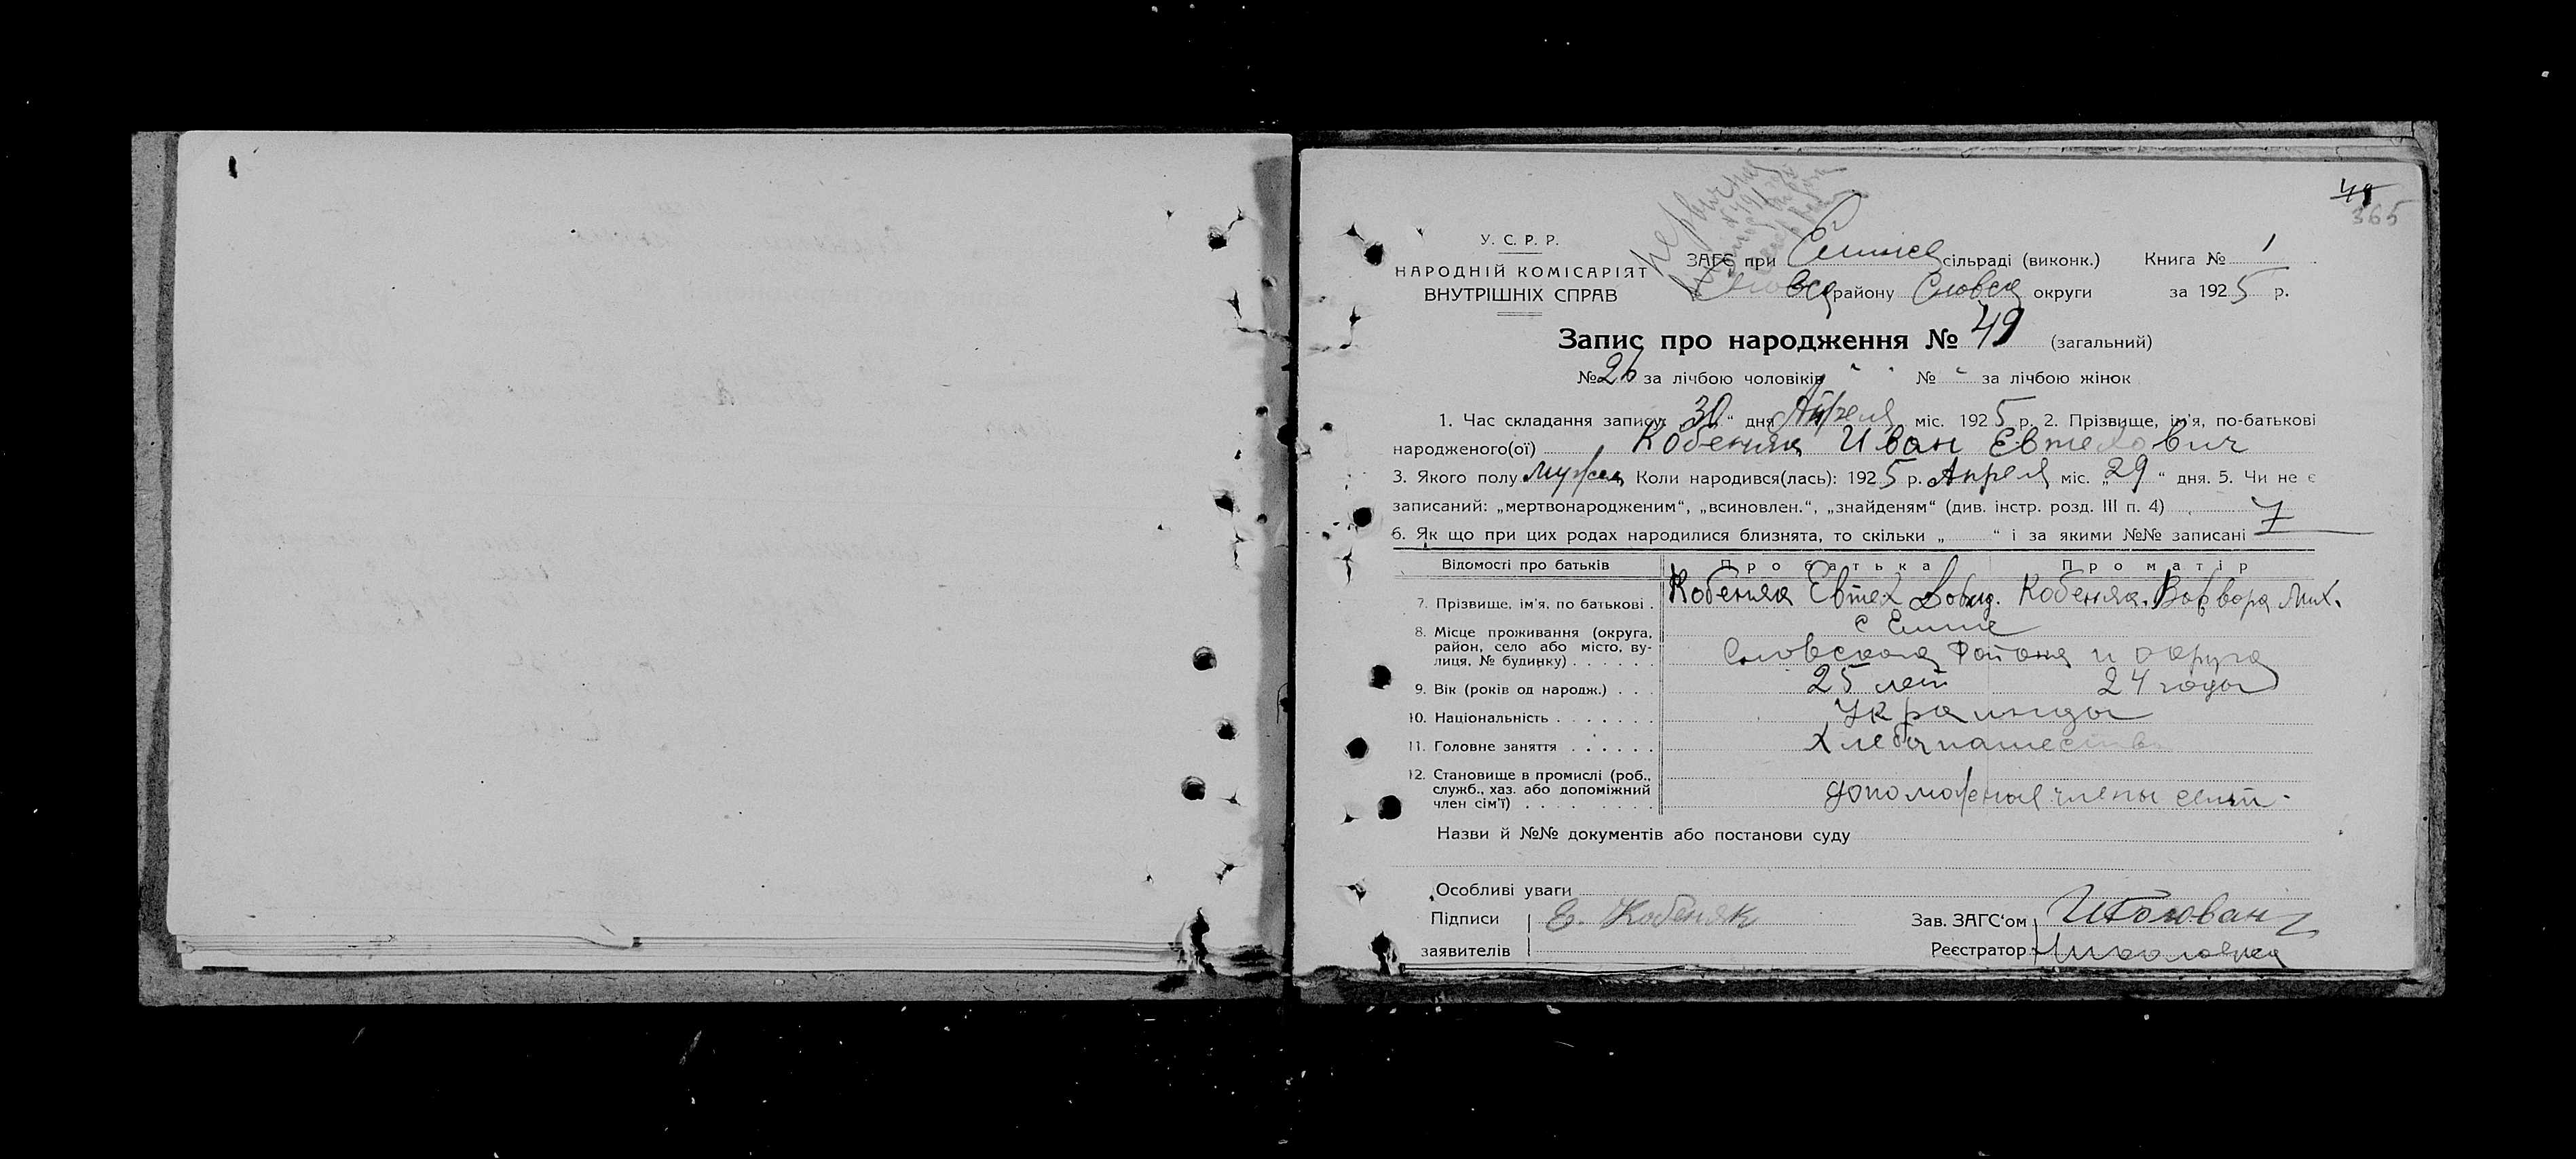 49
365
У. С. Р. Р.
НАРОДНІЙ КОМІСАРІЯТ
ВНУТРІШНІХ СПРАВ
ЗАГС при сільраді (виконк.) Книга № 1
району округи за 1925 р.
Запис про народження № 49 (загальний)
№ 26 за лічбою чоловіків № за лічбою жінок
1. Час складання запису: 30 “ дня Апреля міс. 1925 р. 2. Прізвище, ім'я, по-батькові
народженого(ої) Кобеняка Иван Евтехович
3. Якого полу мужск Коли народився(лась): 1925 р. Апреля міс. „29“ дня. 5. Чи не є
записаний: „мертвонародженим“, „всиновлен.“, „знайденям“ (див. інстр. розд. III п. 4)
6. Як що при цих родах народилися близнята, то скільки „ “ і за якими №№ записані
Відомості про батьків Про батька Про матір
7. Прізвище, ім'я, по батькові . Кобеняка Евтех Кобеняка Варвара Мих.
8. Місце проживання (округа, район, село або місто, вулиця, № будинку) . . . . . .
района и округа
9. Вік (років од народж.) . . . 25 лет 24 года
10. Національність . . . . . . . Украинцы
11. Головне заняття . . . . . . Хлебопашество
12. Становище в промислі (роб., служб., хаз. або допоміжний член сім'ї) . . . . . . . . допоможные члены семьи
Назви й №№ документів або постанови суду
Особливі уваги
Підписи Е. Кобеняк Зав. ЗАГС'ом
заявителів Реєстратор